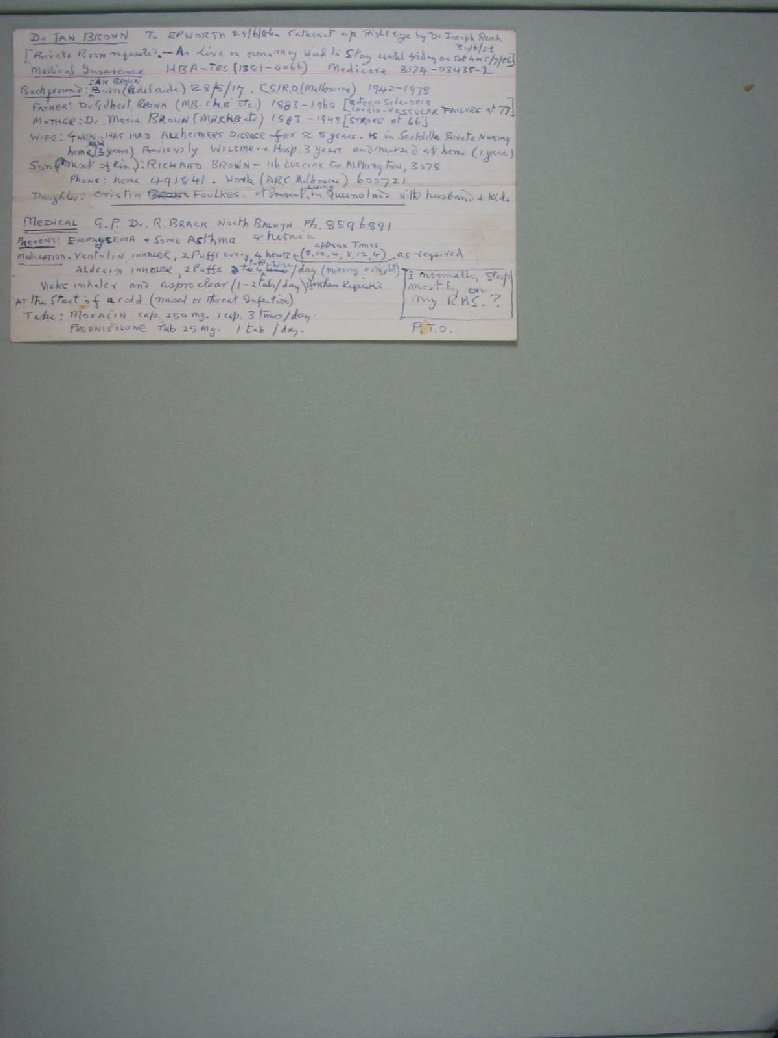 Dr IAN BROWN To EPWORTH 29/6/86 Cataract op. right eye by Dr Joseph Reich
30/6/86
[Private Room requested. - As live on own may wish to stay until friday or Sat 4 or 5/7/86]
Medical Insurance HBA-TES (1381-4066) Medicare 3174-02435-2
IAN BROWN
Background: Born (Adelaide) 28/5/17. CSIRO (Melbourne) 1942-1978
FATHER: Dr Gilbert BROWN (MB.CHB etc) 1883-1960 [Artero Sclerosis
CARDIO-VASCULAR FAILURE at 77]
MOTHER: Dr. Marie BROWN (MB.CHB etc) 1883-1949 [STROKE at 66]
WIFE: GWEN HAS HAD ALZHEIMERS DISEASE for 8 years. IS in Private Nursing
home (3 years) Previously Hosp. 3 years and nursed at home (1 year)
Son (Next of Kin): RICHARD BROWN - 116 Lucerne Cr. ALPHINGTON, 3078
Phone: home 491841. Work (ABC Melbourne) 6
Daughter: Cristin BROWN FOULKES. at present living in Queensland with husband + kids
MEDICAL G.P. Dr. R. BRACK North BALWYN Ph. 8596891
PRESENT: EMPHYSEMA + Some Asthma + hernia
approx Times
MEDICATION. VENTOLIN INHALER, 2 Puffs every 4 hours (8, 12, 4, 8, 12, 4) as required
ALDECIN INHALER, 2 Puffs /day (morning + night)
Vicks inhaler and aspro clear (1-2 tab/day) when Required
I normally sleep
mostly on
my RHS.?
At the Start of a cold (nasal or throat Infection)
Take: MOXACIN cap. 250 mg. 1 cap. 3 times/day.
PREDNISOLONE Tab 25 mg. 1 tab /day.
P.T.O.